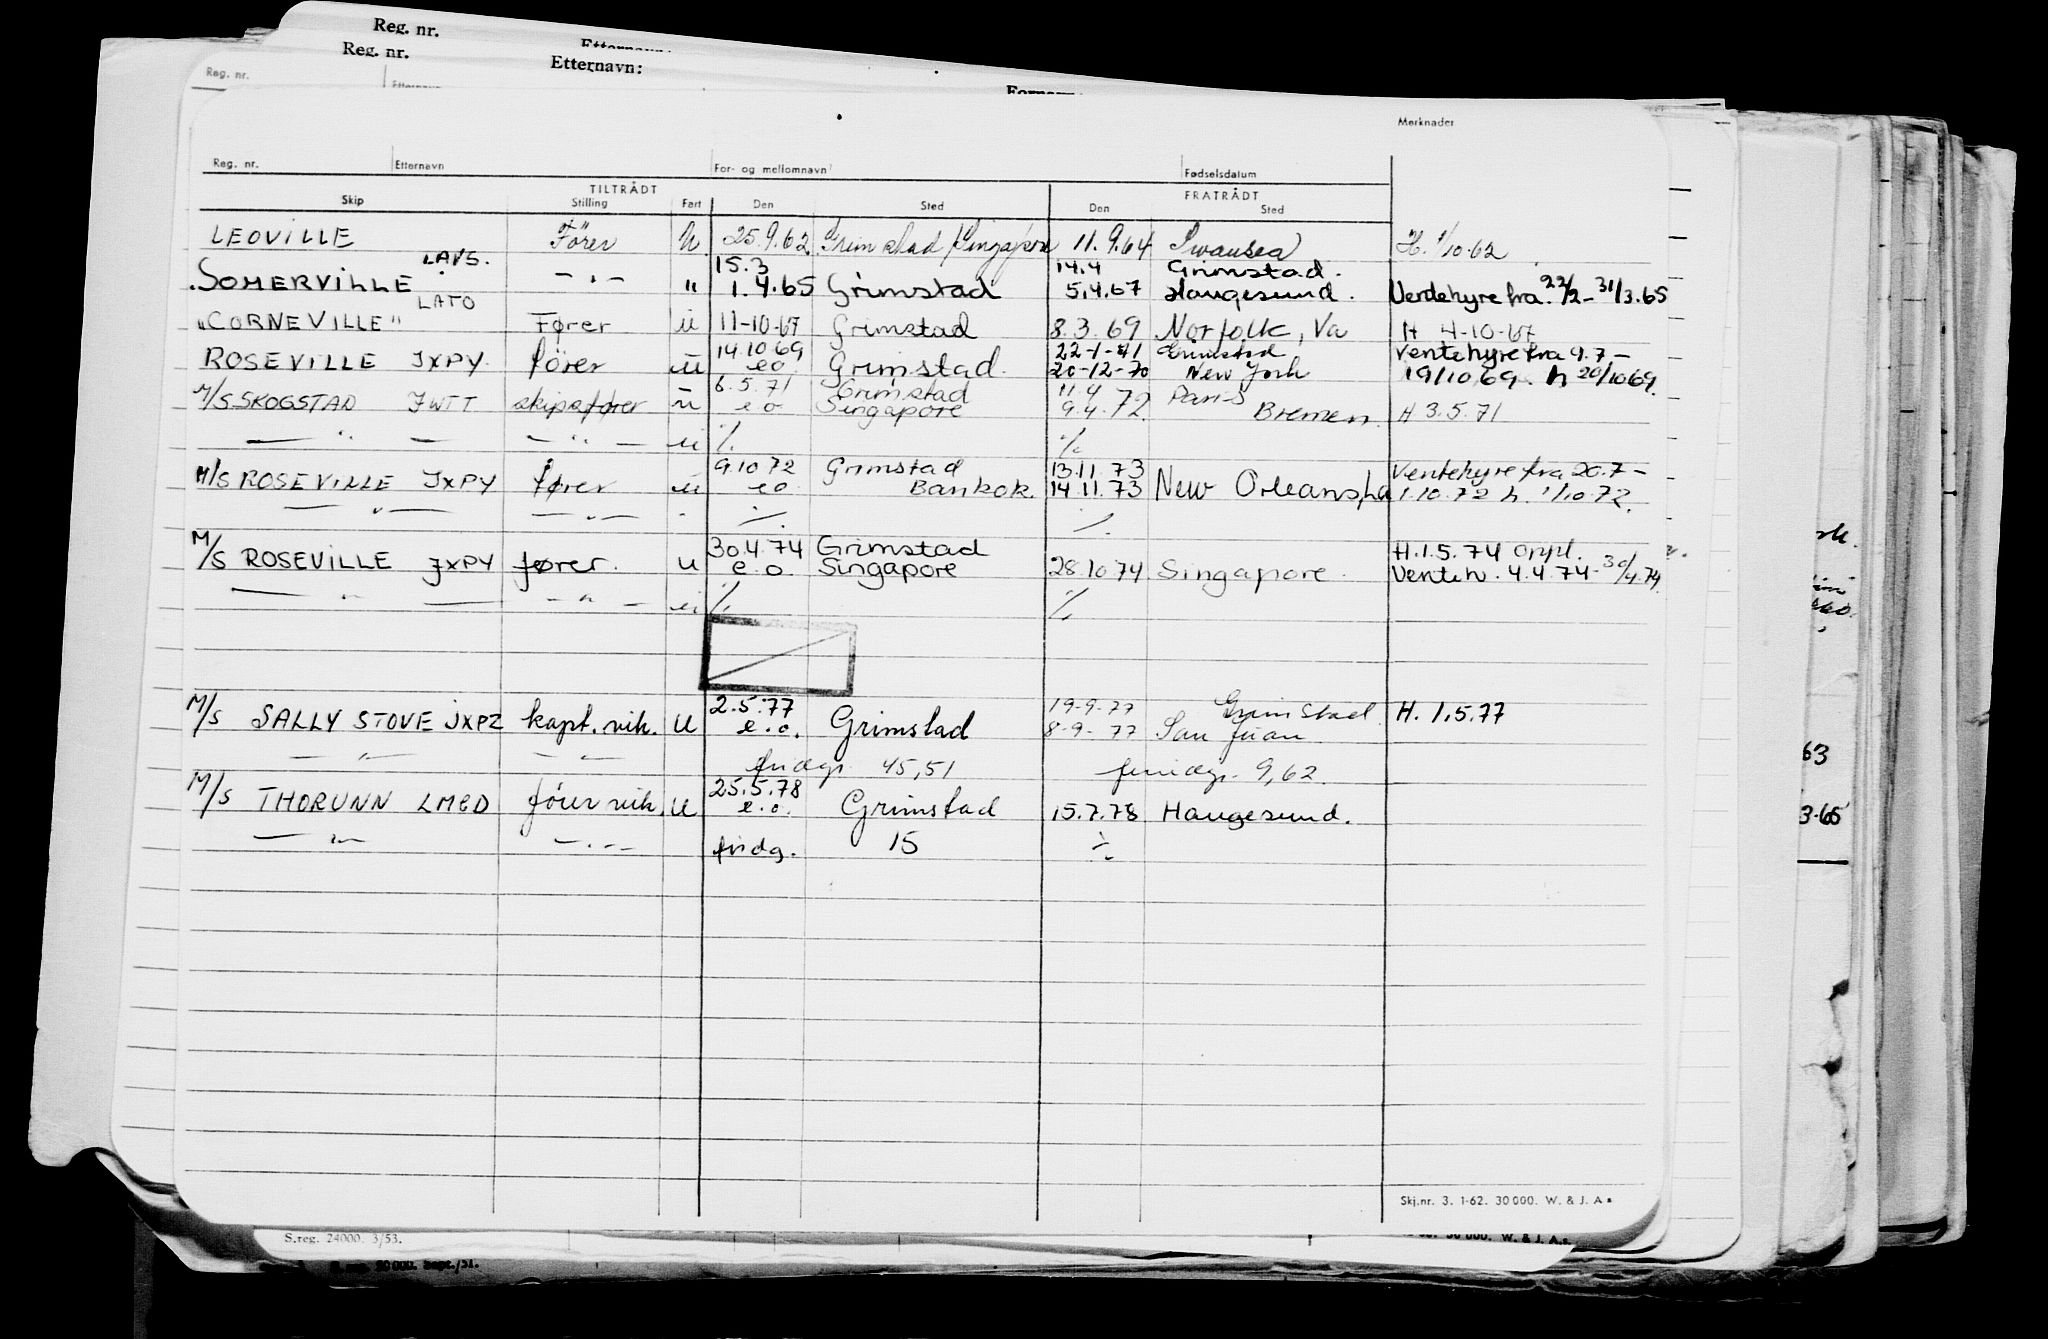 Reg. nr.
Reg. nr. Etternavn:
Reg. nr.
Merknader
Reg. nr. Etternavn For- og mellomnavn Fødselsdatum
TILTRÅDT FRATRÅDT
Skip Stilling Fart Den Sted Den Sted
LEOVILLE Fører U 25.9.62 Grimstad/Singapore 11.9.64 Swansea H. 1/10-62
LAVS. 15.3 14.4 Grimstad.
SOMERVILLE — " — " 1.4.65 Grimstad 5.4.67 Haugesund. Ventehyre fra 22/2-31/3.65
LATO
"CORNEVILLE" Fører u 11-10-67 Grimstad 8.3.69 Norfolk, Va H 4-10-67
14.10 69 22-1-71 Grimstad Ventehyre fra 9.7 —
ROSEVILLE JXPY. fører u eo Grimstad. 20-12-70 New York 19/10 69. h 20/10 69.
6.5.71 Grimstad 11.4 Paris
M/S SKOGSTAD JWTT skipsfører u e o Singapore 9.4.72 Bremen H 3.5.71
— " — — " — u ./. ./.
9.10 72 Grimstad 13.11.73 Ventehyre fra 20.7 —
M/S ROSEVILLE JXPY fører u eo Bankok. 14.11.73 New Orleans, La 1.10.72 h. 1/10.72.
— " — — " — ./. ./.
30.4.74 Grimstad H.1.5.74 oppl.
M/S ROSEVILLE JXPY fører. u e.o Singapore 28.10 74 Singapore. Venteh. 4.4.74-30/4.74
— " — — " — u ./. ./.
2.5.77 19-9-77 Grimstad
M/S SALLY STOVE JXPZ kapt. vik. U e.o. Grimstad 8-9-77 San Juan H. 1.5.77
— " — — " — fridgr. 45,51 feriedgr. 9,62.
25.5.78
M/S THORUNN LMED fører vik. U e.o. Grimstad 15.7.78 Haugesund.
— " — — " — fridg. 15 ./.
63
3.65
Skj.nr. 3. 1-62. 30 000. W. & J. A s
S.reg. 24000. 3/53.
30 000. W. & J. A.s.
30 000. Sept./51.